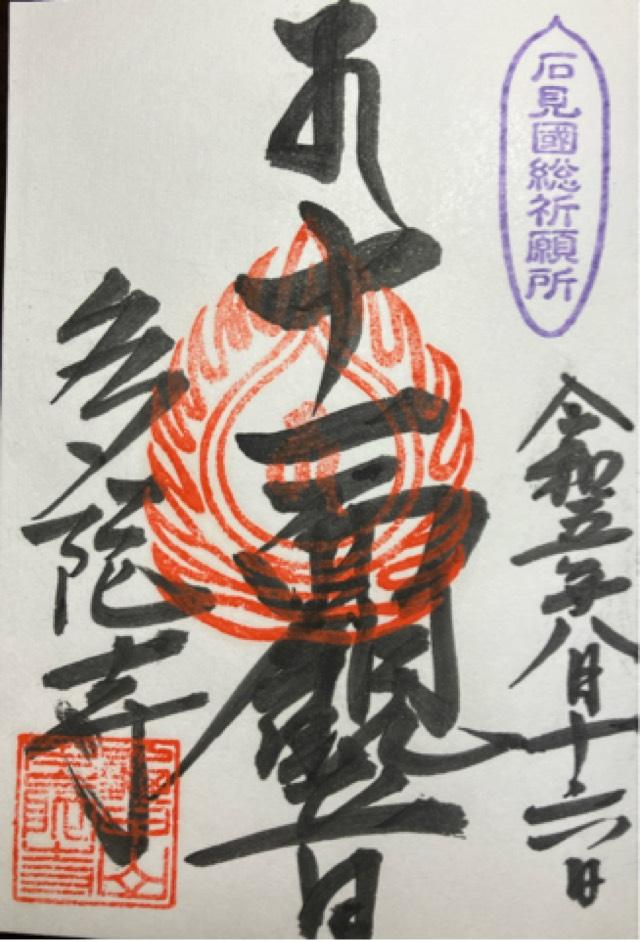 石見國総祈願所
令和五年八月十六日
十一面観世音
多陀寺